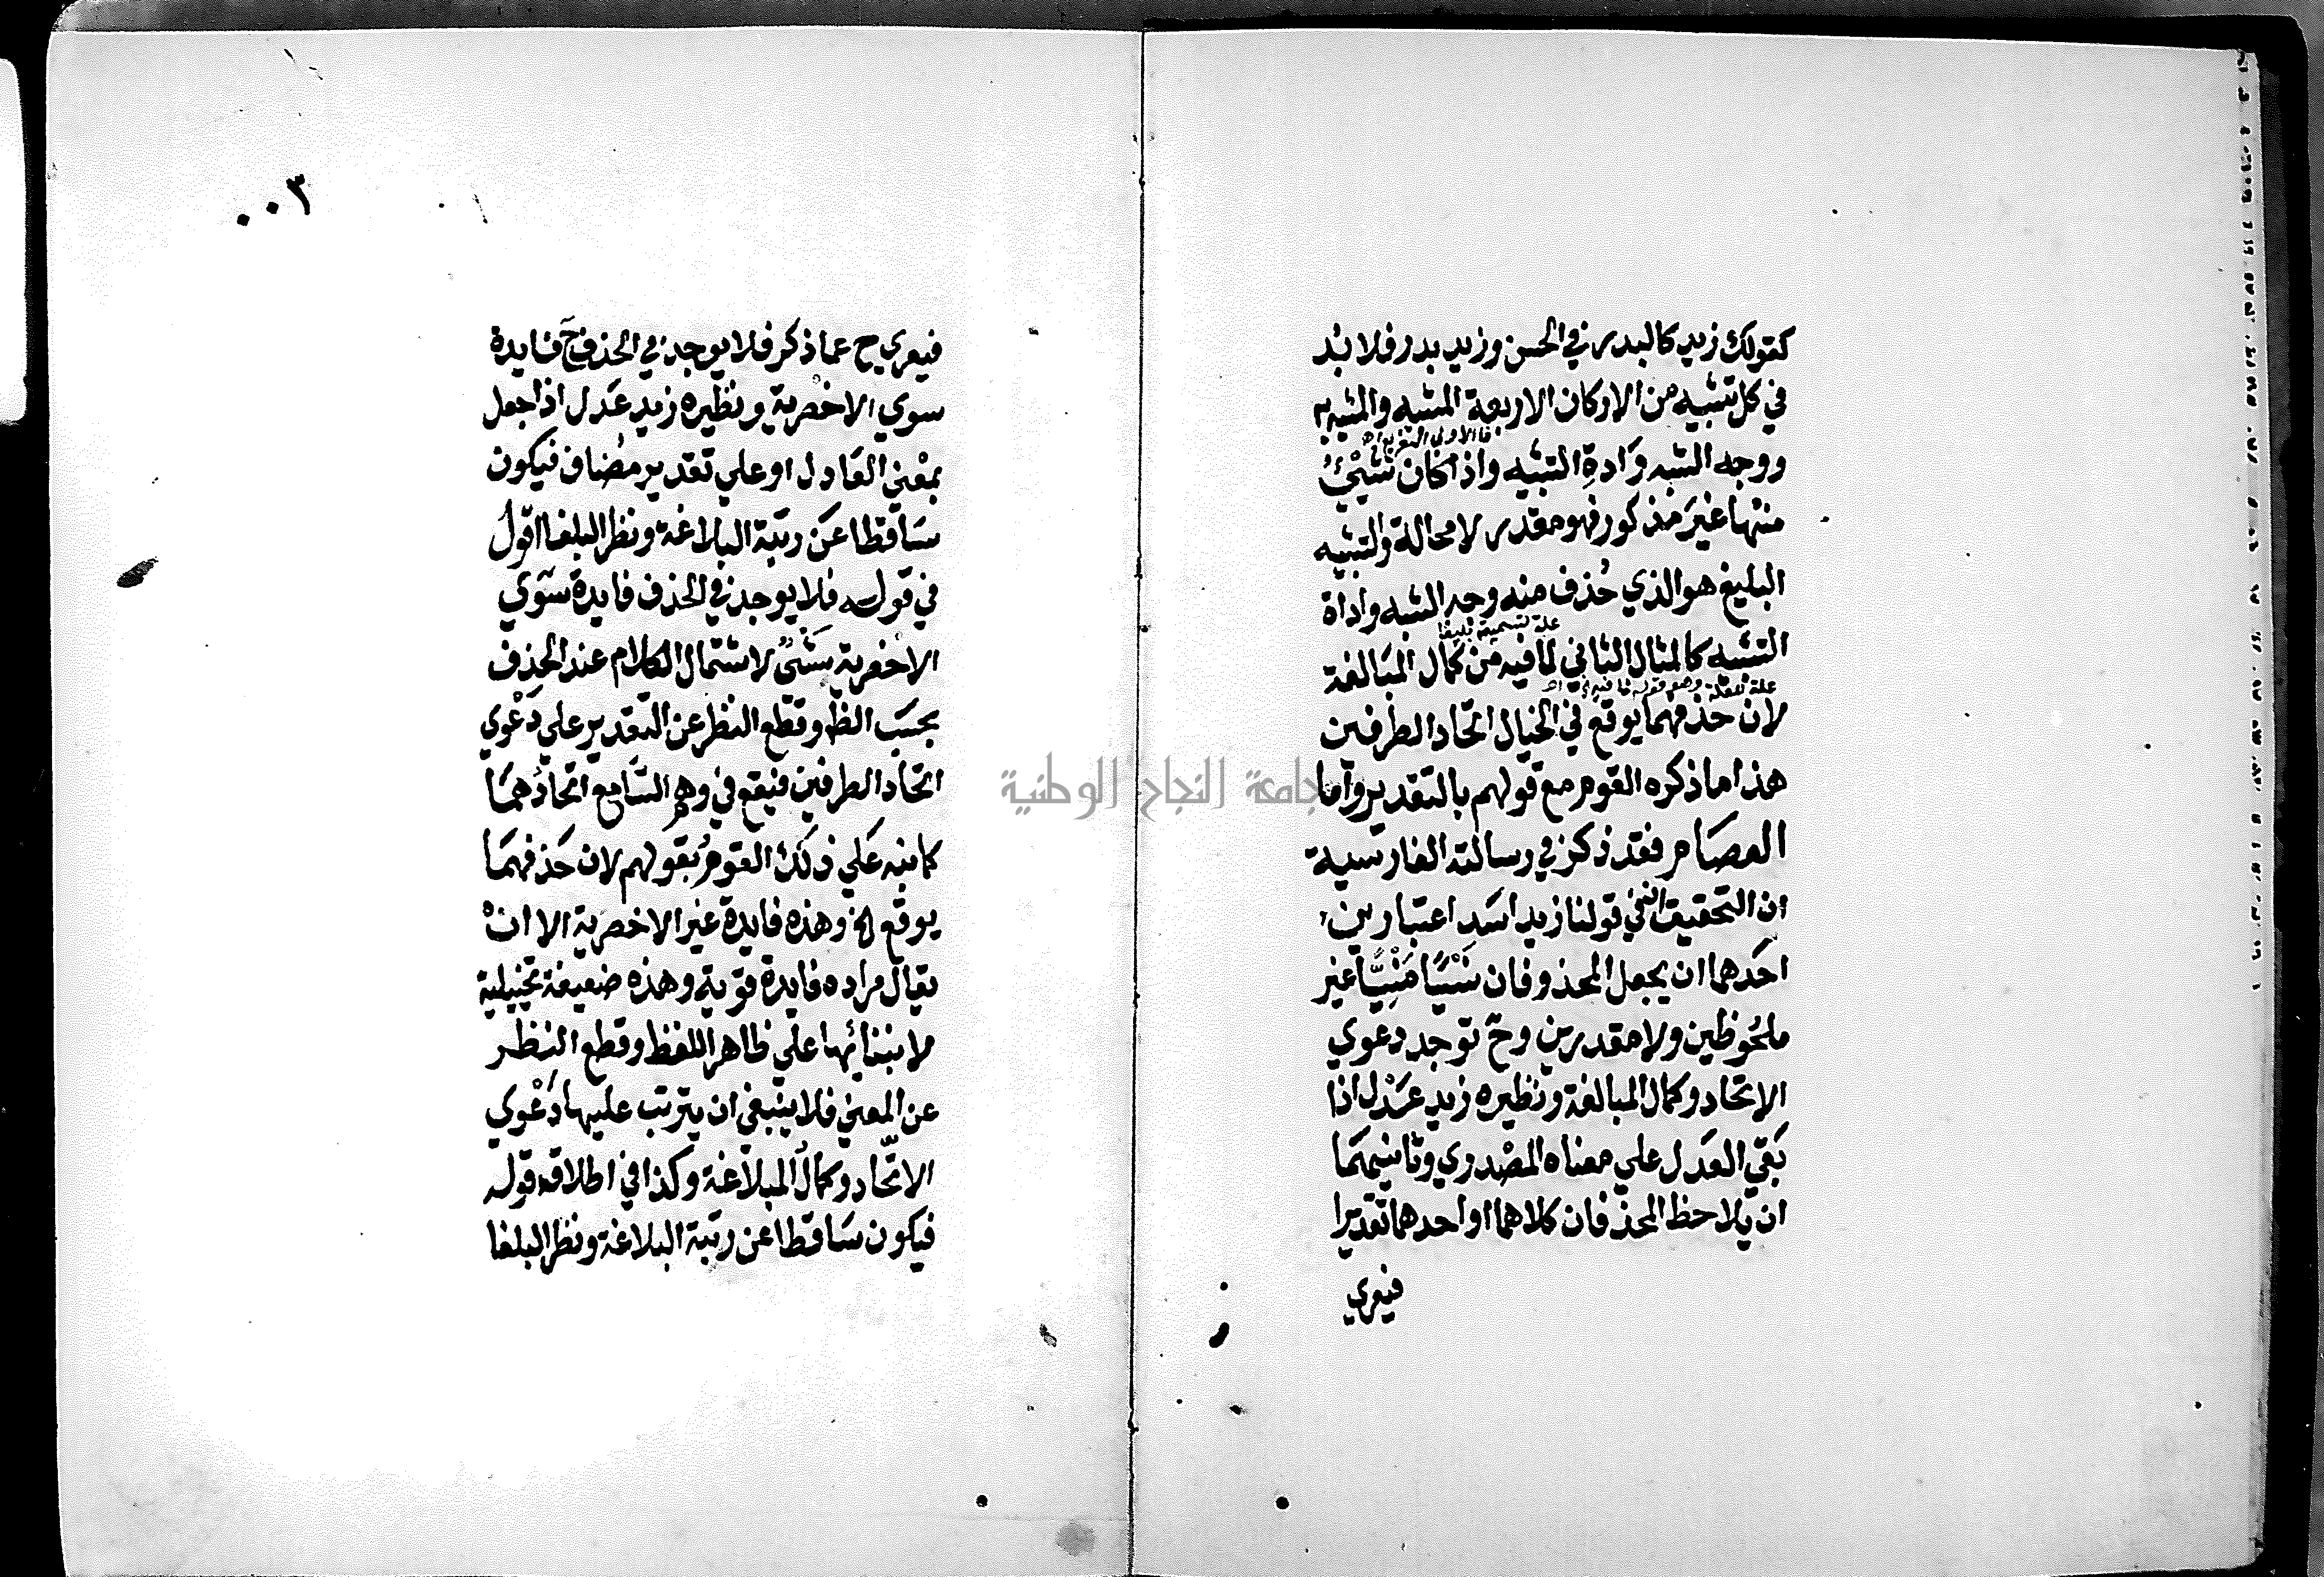 كقولك زيد كالبدر في الحسن وزيد بدر فلا بُد
في كل تشبيه من الاركان الاربعة المشبه والمشبه به
فالاولى التفريع اه
ووجه الشبه وَادةِ التشبيه واذا كان شَيْئٌ
منها غيرَ مذكور فهو مقدر لا محالة والتشبيه
البليغ هو الذي حُذف منه وجه الشبه واداة
علة تسميته بليغا
التشبيه كالمثال الثاني لما فيه من كمال المبَالغة
علة للعلة وهو قوله لما فيه اه
لان حذفهما يوقع في الخيال اتحاد الطرفين
هذا ما ذكره القوم مع قولهم بالتقدير واما
العصَام فقد ذكر في رسالته الفارسية
ان التحقيق ان في قولنا زيد اسَد اعتبارين
احَدهما ان يجعل المحذوفان نَسْيًا مَنْسِيًّا غير
ملحُوظين ولا مقدرين وح توجد دعوي
الاتحاد وكمال المبالغة ونظيره زيد عَدْل اذا
بَقي العَدل علي معناه المصْدري وثانيهمَا
ان يلاحظ المحذفان كلاهما او احدهما تقديرا
فيعري
٠٠٣
فيعري ح عما ذكر فلا يوجد في الحذف ح فايدة
سوي الاخصرية ونظيره زيد عَدل اذا جعل
بمعْني العَادل او علي تقدير مضاف فيكون
سَاقطا عَن رتبة البلاغة ونظر البلغا اقول
في قوله فلا يوجد في الحذف فايدة سَوي
الاخصرية شَيْءٌ لاشتمال الكلام عند الحذف
بحسَب الظ وقطع النظر عن التقدير علي دَعْوي
اتحاد الطرفين فيقع في وهم السَّامع اتحادُهمَا
كما نبه عَلي ذلك القومُ بقولهم لان حَذفهمَا
يوقع الخ وهذه فايدة غير الاخصرية الا انْ
يقال مراده فايدة قوية وهذه ضعيفة تخييلية
لابتنائها علي ظاهر اللفظ وقطع النظر
عن المعني فلا ينبغي ان يترتب عليها دَعْوي
الاتّحاد وكمالُ المبلاغة وكذا في اطلاقه قوله
فيكون سَاقطا عن رتبة البلاغة ونظر البلغا
جامعة النجاح الوطنية